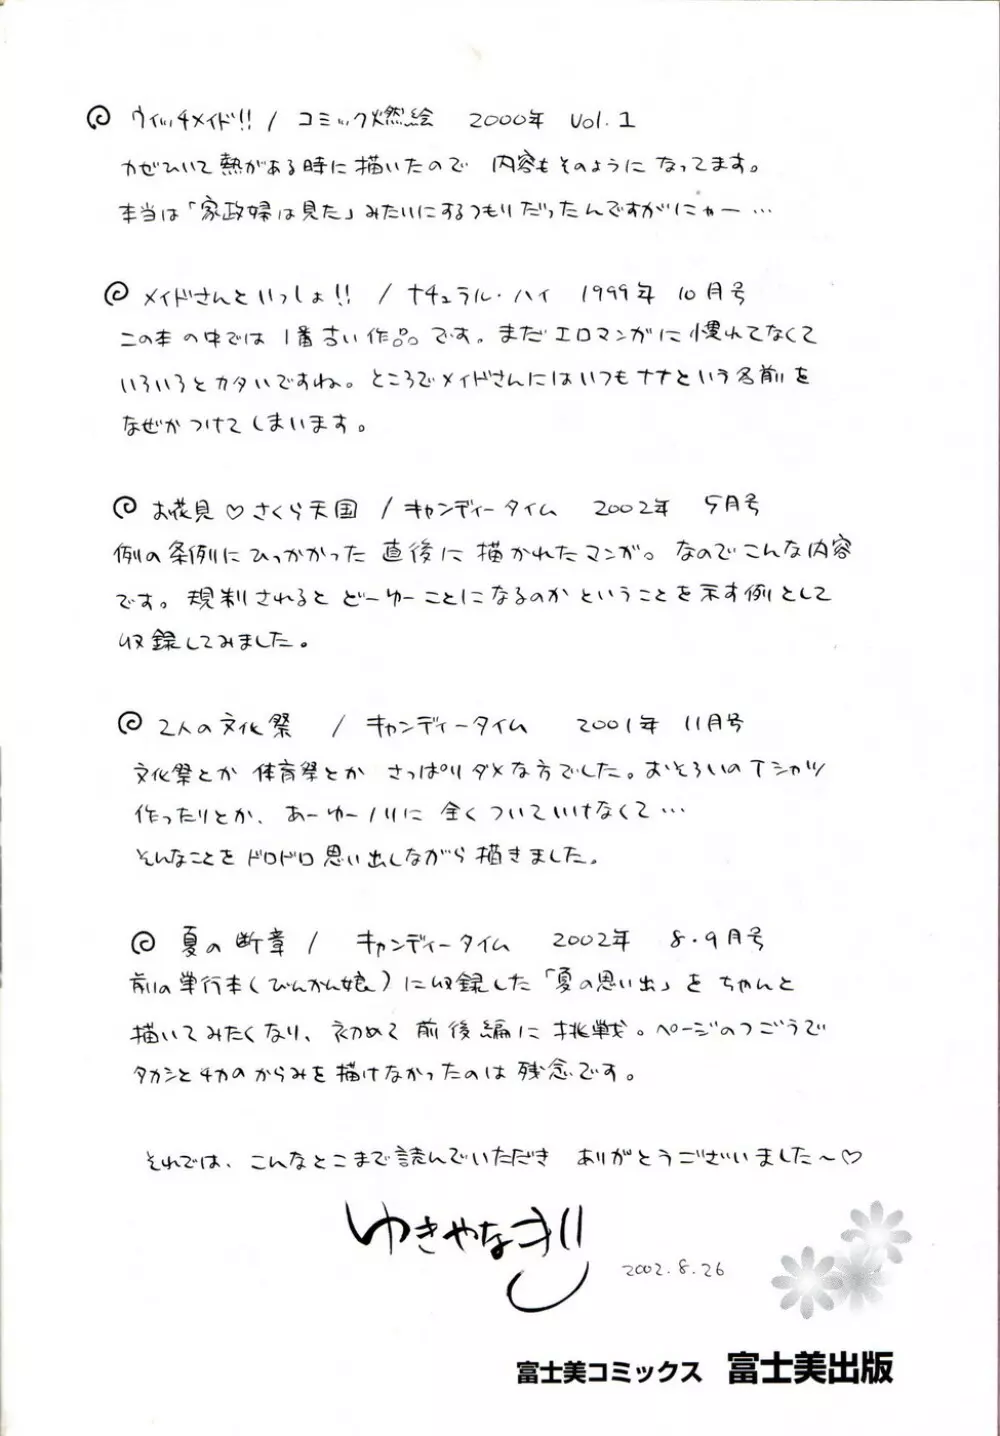 ウィッチメイド!! / コミック燃絵 2000年 Vol.1
カゼひいて熱がある時に描いたので 内容もそのように なってます。
本当は「家政婦は見た」みたいにするつもりだったんですがにゃー…
メイドさんといっしょ!! / ナチュラル・ハイ 1999年 10月号
この本の中では 1番古い作品です。まだエロマンガに慣れてなくて
いろいろとカタいですね。ところでメイドさんにはいつもナナという名前を
なぜかつけてしまいます。
お花見♡さくら天国 / キャンディータイム 2002年 5月号
例の条例にひっかかった直後に描かれたマンガ。なのでこんな内容
です。規制されるとどーゆーことになるのかということを示す例として
収録してみました。
2人の文化祭 / キャンディータイム 2001年 11月号
文化祭とか体育祭とか さっぱりダメな方でした。おそろいのTシャツ
作ったりとか、あーゆーノリに全くついていけなくて…
そんなことをドロドロ思い出しながら描きました。
夏の断章 / キャンディータイム 2002年 8・9月号
前の単行本(びんかん娘)に収録した「夏の思い出」をちゃんと
描いてみたくなり、初めて前後編に挑戦。ページのつごうで
タカシとチカのからみを描けなかったのは残念です。
それでは、こんなとこまで読んでいただき ありがとうございました〜♡
ゆきやなぎ
2002.8.26
富士美コミックス 富士美出版